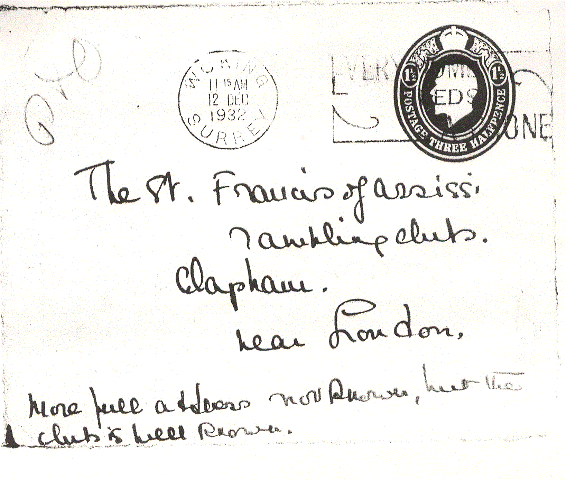 PTO
WOKING
11 15 AM
12 DEC
1932
SURREY
EVERY HOME
NEEDS
PHONE
1½ 1½
POSTAGE THREE HALFPENCE
The St. Francis of assissi
rambling club.
Clapham.
near London.
More full address not known, but the
club is well known.